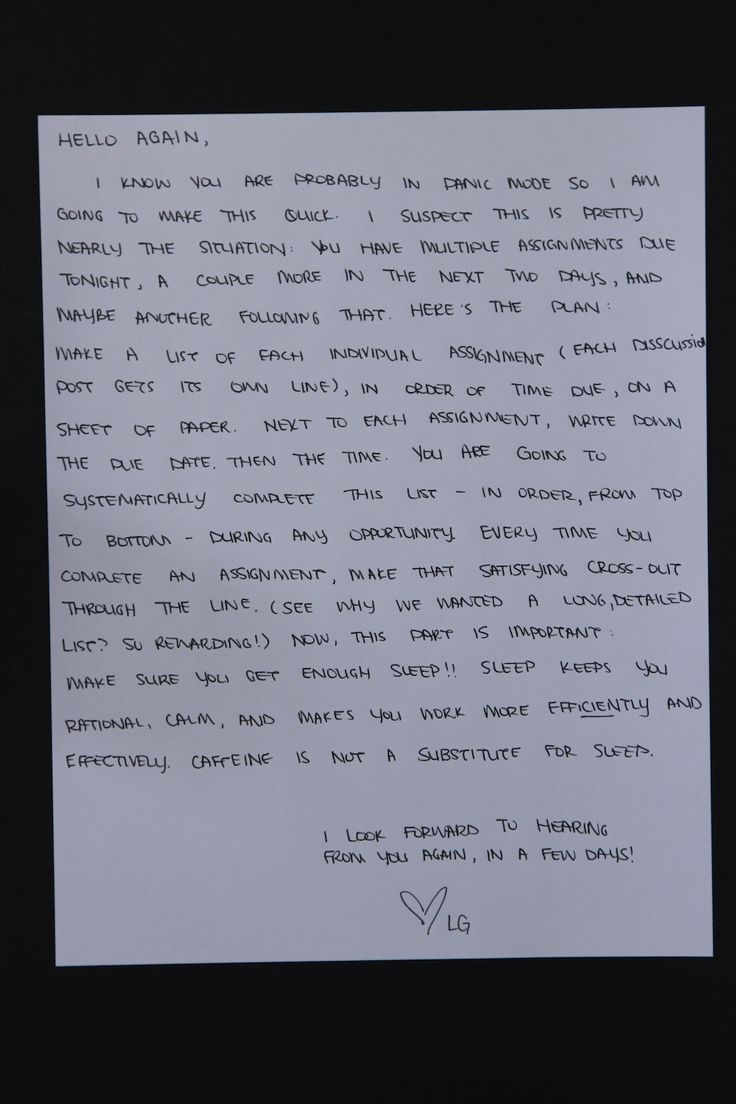 HELLO AGAIN,
I KNOW YOU ARE PROBABLY IN PANIC MODE SO I AM
GOING TO MAKE THIS QUICK. I SUSPECT THIS IS PRETTY
NEARLY THE SITUATION: YOU HAVE MULTIPLE ASSIGNMENTS DUE
TONIGHT, A COUPLE MORE IN THE NEXT TWO DAYS, AND
MAYBE ANOTHER FOLLOWING THAT. HERE'S THE PLAN:
MAKE A LIST OF EACH INDIVIDUAL ASSIGNMENT (EACH DISSCUSSION
POST GETS ITS OWN LINE), IN ORDER OF TIME DUE, ON A
SHEET OF PAPER. NEXT TO EACH ASSIGNMENT, WRITE DOWN
THE DUE DATE. THEN THE TIME. YOU ARE GOING TO
SYSTEMATICALLY COMPLETE THIS LIST - IN ORDER, FROM TOP
TO BOTTOM - DURING ANY OPPORTUNITY. EVERY TIME YOU
COMPLETE AN ASSIGNMENT, MAKE THAT SATISFYING CROSS-OUT
THROUGH THE LINE. (SEE WHY WE WANTED A LONG, DETAILED
LIST? SO REWARDING!) NOW, THIS PART IS IMPORTANT:
MAKE SURE YOU GET ENOUGH SLEEP!! SLEEP KEEPS YOU
RATIONAL, CALM, AND MAKES YOU WORK MORE EFFICIENTLY AND
EFFECTIVELY. CAFFEINE IS NOT A SUBSTITUTE FOR SLEEP.
I LOOK FORWARD TO HEARING
FROM YOU AGAIN, IN A FEW DAYS!
LG